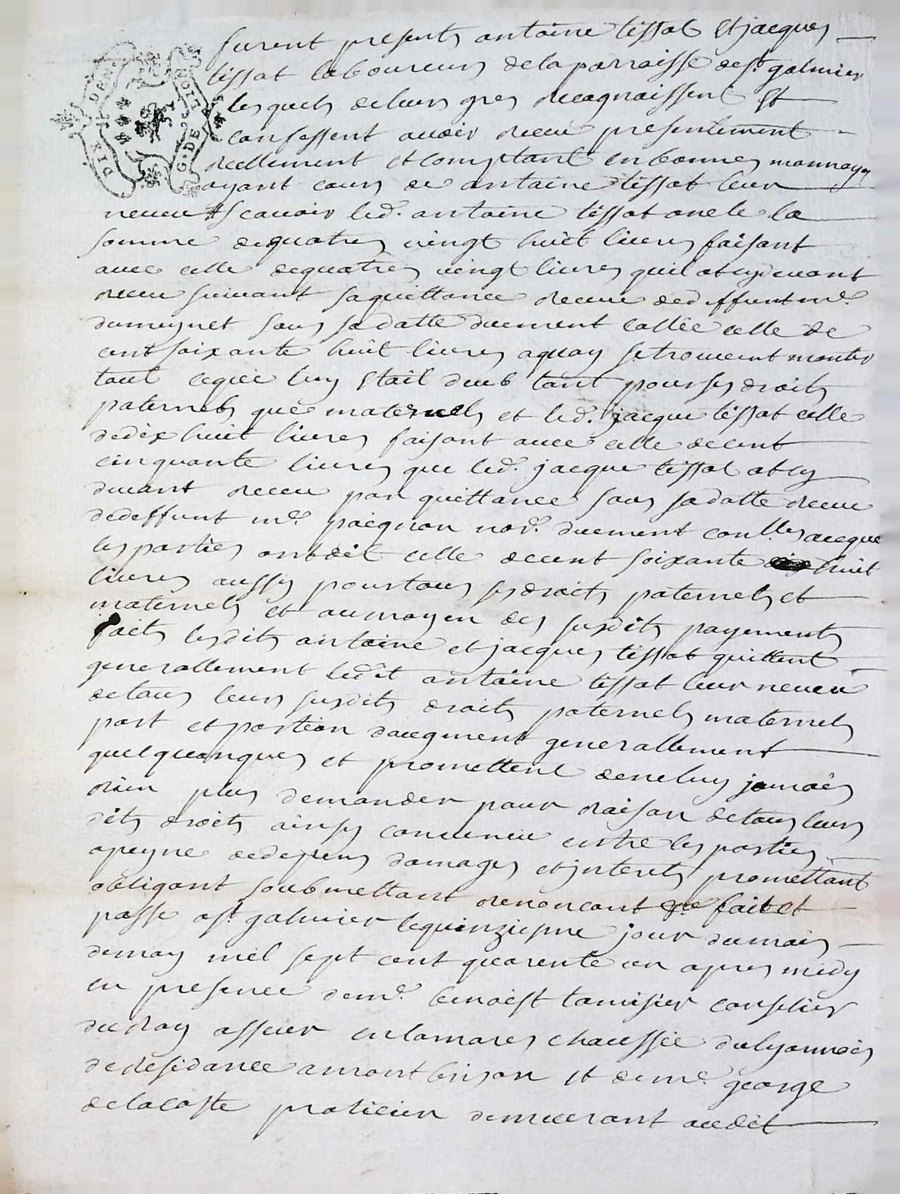 DIX DEN
G. DE
furent presents antoine tissot et jacques
tissot laboureurs de la parroisse de st. galmier
lesquels de leur gres recognoissent et
confessent avoir receu presentement
reellement et comptant en bonnes monnoyes
ayant cours de antoine tissot leur
neveu scavoir led. antoine tissot oncle la
somme de quatres vingt huit livres faisant
avec celle de quatres vingt livres quil at cy devant
receu suivant sa quittance receue de deffunt me.
dumeynet sous sa datte duement collée celle de
cent soixante huit livres a quoy se trouvent monter
tout ce qui luy etait deub tant pour ses droits
paternels que maternels et led. jacque tissot celle
de dix huit livres faisant avec celle de cent
cinquante livres que led. jacque tissot at cy
devant receu par quittance sous sa datte receue
de deffunt me. pacqnon nore. duement conllee a ce que
les parties ont dit celle de cent soixante huit
livres aussy pour tous ses droits paternels et
maternels et au moyen des susdits payements
faits lesdits antoine et jacques tissot quittent
generallement ledit antoine tissot leur neveu
de tous leurs susdits droits paternels maternels
part et portion d'augment generallement
quelquonques et promettent de ne luy jamais
rien plus demander pour raison de tous leurs
dits droits ainsy convenu entre les parties
a peyne de depens domages et interets promettant
obligant soubmettant renoncant fait et
passe a st galmier le quinziesme jour du mois
de may mil sept cent quarente un apres midy
en presence de me. benoist tamisier conselier
du Roy assieur en la mares chaussée du lyonnois
de residance a montbrison et de me. george
delacoste praticien demeurant audit